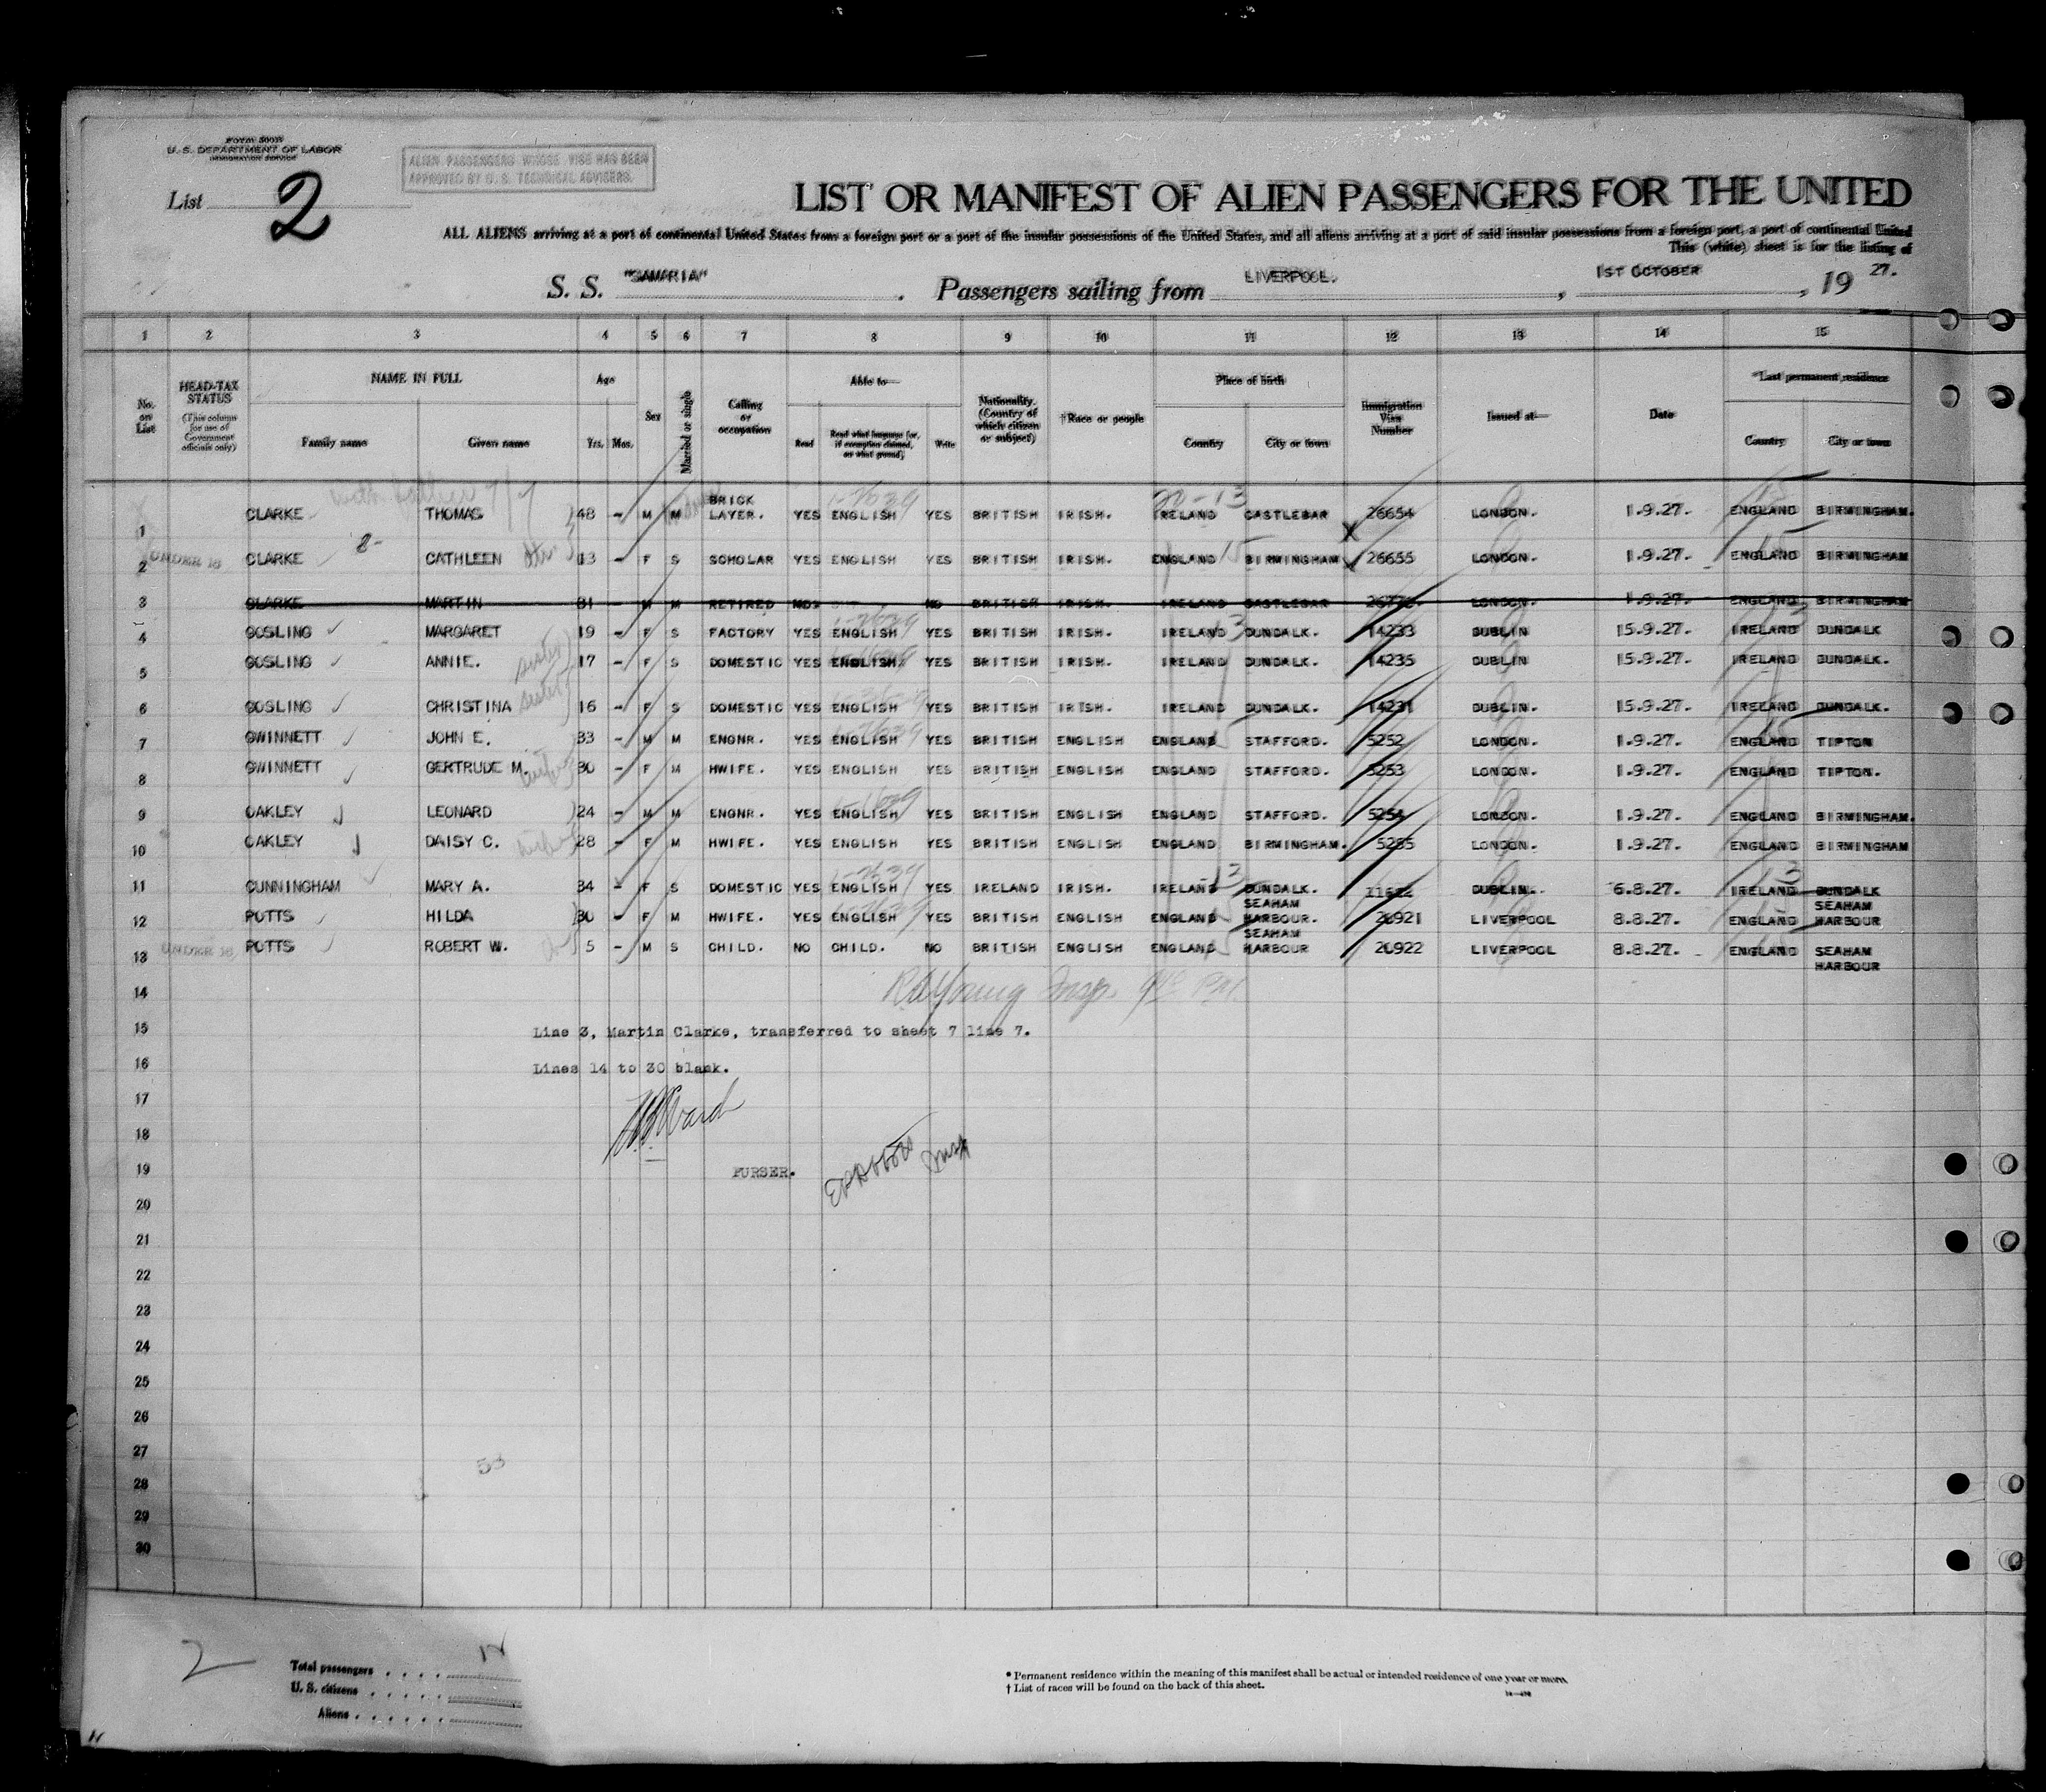 FORM 500B
U. S. DEPARTMENT OF LABOR
IMMIGRATION SERVICE
ALIEN PASSENGERS WHOSE VISE HAS BEEN
APPROVED BY U. S. TECHNICAL ADVISERS.
List 2
LIST OR MANIFEST OF ALIEN PASSENGERS FOR THE UNITED
ALL ALIENS arriving at a port of continental United States from a foreign port or a port of the insular possessions of the United States, and all aliens arriving at a port of said insular possessions from a foreign port, a port of continental United
This (white) sheet is for the listing of
S. S. "SAMARIA" . Passengers sailing from LIVERPOOL. , 1ST OCTOBER , 19 27.
1 2 3 4 5 6 7 8 9 10 11 12 13 14 15
No. on List
HEAD-TAX STATUS (This column for use of Government officials only)
NAME IN FULL Family name Given name
Age Yrs. Mos.
Sex
Married or single
Calling or occupation
Able to— Read Read what language (or, if exemption claimed, on what ground) Write
Nationality. (Country of which citizen or subject)
†Race or people
Place of birth Country City or town
Immigration Visa Number
Issued at—
Date
*Last permanent residence Country City or town
with father
1 CLARKE THOMAS 48 - M M BRICK LAYER. YES ENGLISH YES BRITISH IRISH. IRELAND CASTLEBAR 26654 LONDON. 1.9.27. ENGLAND BIRMINGHAM.
2 UNDER 16 CLARKE CATHLEEN 13 - F S SCHOLAR YES ENGLISH YES BRITISH IRISH. ENGLAND BIRMINGHAM 26655 LONDON. 1.9.27. ENGLAND BIRMINGHAM
3 CLARKE MARTIN 81 - M M RETIRED NO. NO BRITISH IRISH. IRELAND CASTLEBAR LONDON. 1.9.27. ENGLAND BIRMINGHAM
4 GOSLING MARGARET 19 - F S FACTORY YES ENGLISH YES BRITISH IRISH. IRELAND DUNDALK. 14233 DUBLIN 15.9.27. IRELAND DUNDALK
5 GOSLING ANNIE. sister 17 - F S DOMESTIC YES ENGLISH. YES BRITISH IRISH. IRELAND DUNDALK. 14235 DUBLIN 15.9.27. IRELAND DUNDALK.
6 GOSLING CHRISTINA sister 16 - F S DOMESTIC YES ENGLISH YES BRITISH IRISH. IRELAND DUNDALK. 14231 DUBLIN. 15.9.27. IRELAND DUNDALK.
7 GWINNETT JOHN E. 33 - M M ENGNR. YES ENGLISH YES BRITISH ENGLISH ENGLAND STAFFORD. 5252 LONDON. 1.9.27. ENGLAND TIPTON
8 GWINNETT GERTRUDE M. wife 30 - F M HWIFE. YES ENGLISH YES BRITISH ENGLISH ENGLAND STAFFORD. 5253 LONDON. 1.9.27. ENGLAND TIPTON.
9 OAKLEY LEONARD 24 - M M ENGNR. YES ENGLISH YES BRITISH ENGLISH ENGLAND STAFFORD. 5254 LONDON. 1.9.27. ENGLAND BIRMINGHAM.
10 OAKLEY DAISY C. wife 28 - F M HWIFE. YES ENGLISH YES BRITISH ENGLISH ENGLAND BIRMINGHAM. 5255 LONDON. 1.9.27. ENGLAND BIRMINGHAM
11 CUNNINGHAM MARY A. 34 - F S DOMESTIC YES ENGLISH YES IRELAND IRISH. IRELAND DUNDALK. DUBLIN. 6.8.27. IRELAND DUNDALK
12 POTTS HILDA 30 - F M HWIFE. YES ENGLISH YES BRITISH ENGLISH ENGLAND SEAHAM HARBOUR. 20921 LIVERPOOL 8.8.27. ENGLAND SEAHAM HARBOUR
13 UNDER 16 POTTS ROBERT W. 5 - M S CHILD. NO CHILD. NO BRITISH ENGLISH ENGLAND SEAHAM HARBOUR 20922 LIVERPOOL 8.8.27. ENGLAND SEAHAM HARBOUR
14 Young Insp.
15 Line 3, Martin Clarke, transferred to sheet 7 line 7.
16 Lines 14 to 30 blank.
17
18 Ward
19 PURSER. Insp
20
21
22
23
24
25
26
27 53
28
29
30
2
Total passengers . . . . 12
U. S. citizens . . . . .
Aliens . . . . . .
* Permanent residence within the meaning of this manifest shall be actual or intended residence of one year or more.
† List of races will be found on the back of this sheet.